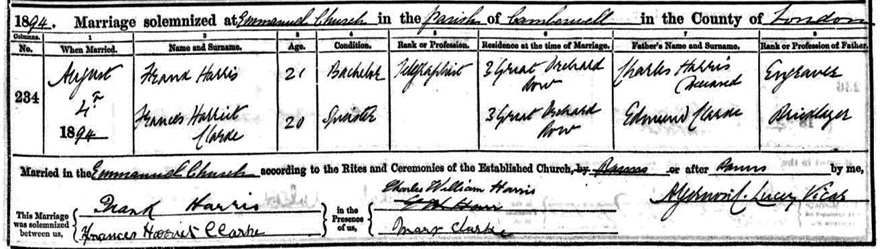 1894. Marriage solemnized at Emmanuel Church in the Parish of Camberwell in the County of London
Columns. 1 2 3 4 5 6 7 8
No. When Married. Name and Surname. Age. Condition. Rank or Profession. Residence at the time of Marriage. Father's Name and Surname. Rank or Profession of Father.
234
August 4th 1894
Frank Harris 21 Bachelor Telegraphist 3 Great Orchard Row Charles Harris deceased Engraver
Frances Harriet Clarke 20 Spinster 3 Great Orchard Row Edmund Clarke Bricklayer
Married in the Emmanuel Church according to the Rites and Ceremonies of the Established Church, by Banns or after Banns by me,
This Marriage was solemnized between us, Frank Harris Frances Harriet Clarke
in the Presence of us, Charles William Harris Mary Clarke
Vicar